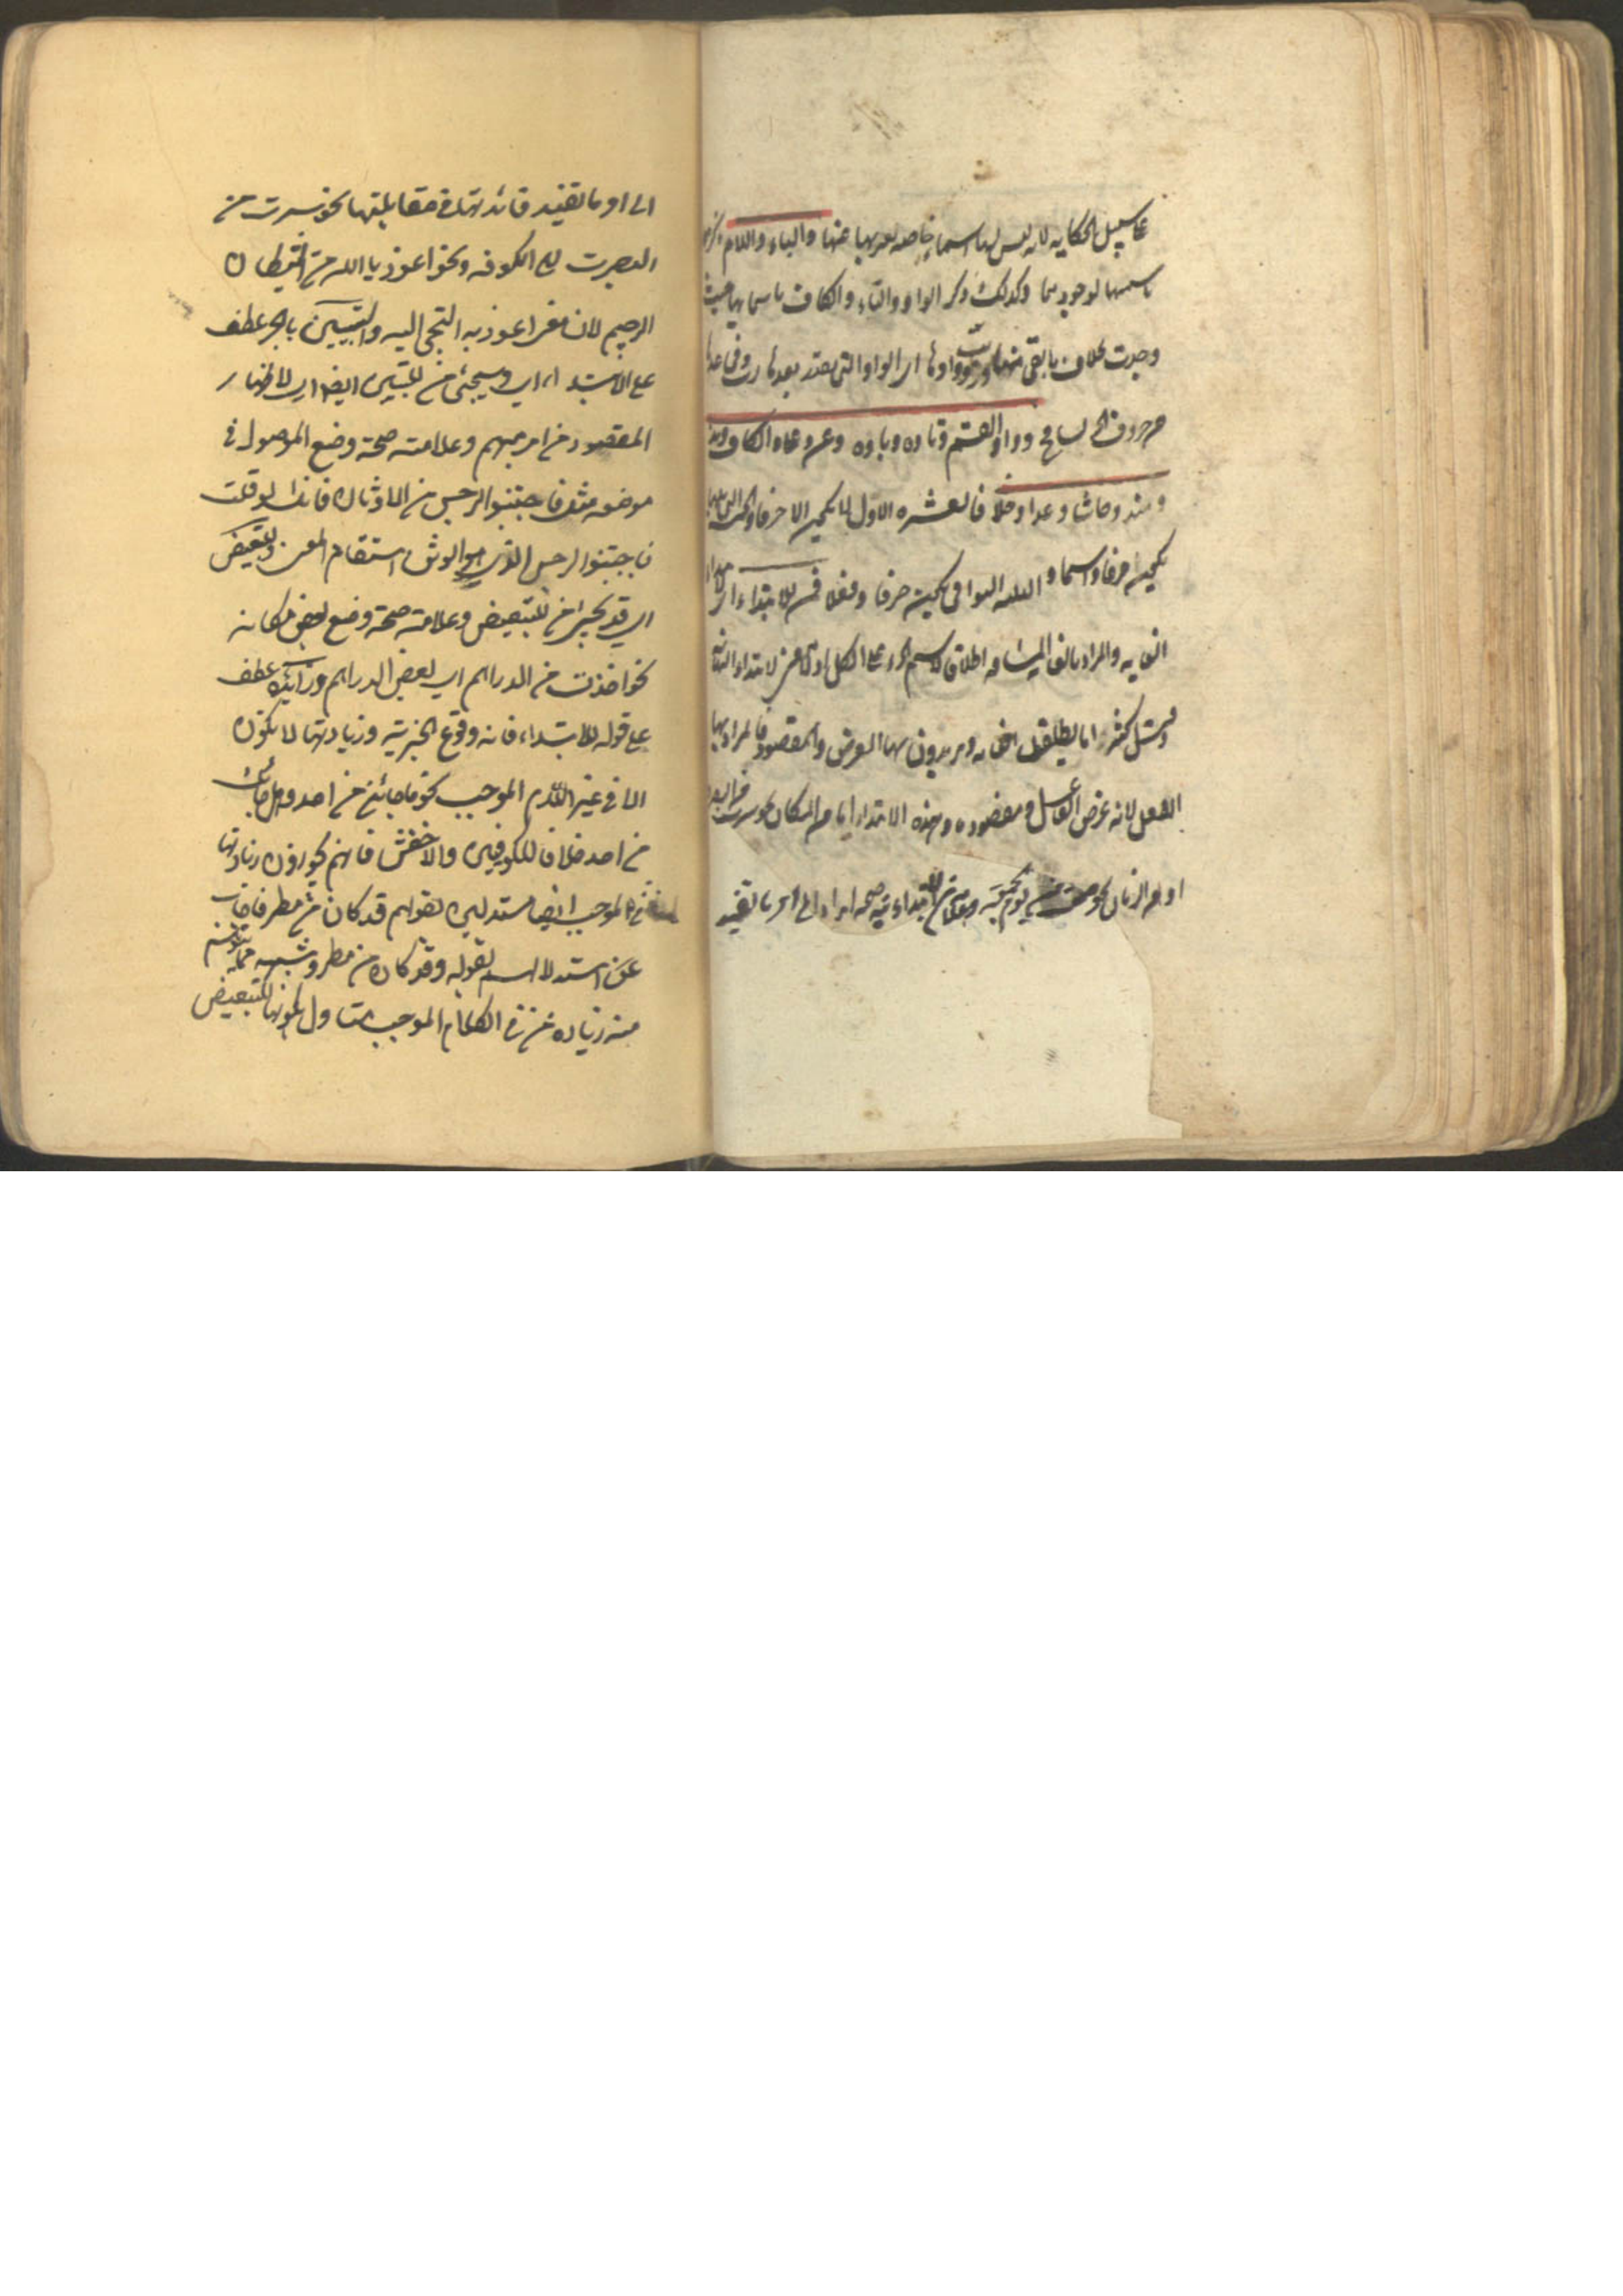 على سبيل الحكايه لانه ليس لها اسماء خاصه يعبر بها عنها والباء واللام
باسمها لوجودهما وكذلك ذكر الواو والتاء والكاف باسمائها حيث
وجدت بخلاف ما بقى منها ورب وواوها اى الواو التى يقدر بعدها رب
وواو القسم وتاءه وباءه وعن وعلى والكاف ومذ
ومنذ وحاشا وعدا وخلا فالعشره الاول لا يكون الا حرفا
يكون حرفا واسما و الثلثه البواقى يكون حرفا وفعلا فمن للابتداء اى
الغايه والمراد بالغايه المسافه اطلاقا لاسم الجزء على الكل اذ لا معنى لابتداء النهايه
وقيل كثيرا ما يطلقون الغايه ويريدون بها الغرض والمقصود فالمراد بها
الفعل لانه غرض الفاعل ومقصوده وهذه الابتداء اما من المكان نحو سرت من
او من الزمان نحو صمت من يوم الجمعة وعلامة من الابتدائية صحة ايراد الى او ما تفيد
الى او ما تفيد فائدتها فى مقابلتها نحو سرت من
البصرت الى الكوفه ونحو اعوذ باالله من الشيطان
الرجيم لان معنى اعوذ به التجى اليه والتبيين بالجر عطف
على الابتداء اى ويجئ من للتبيين ايضا اى لاظهار
المقصود من امر مبهم وعلامته صحة وضع الموصول فى
موضعه مثل فاجتنبوا الرجس من الاوثان فانك لو قلت
فاجتنبوا الرجس الذى هو الوثن استقام المعنى والتبعيض
اى قد يجئ من للتبعيض وعلامته صحة وضع بعض مكانه
نحو اخذت من الدراهم اى بعض الدراهم وزائدة عطف
على قوله للابتداء فانه وقوع الخبرية وزيادتها لا يكون
الا فى غير الكلام الموجب نحو ما جائنى من احد وهل جائك
من احد خلافا للكوفيين والاخفش فانهم يجوزون زيادتها
فى الموجب ايضا مستدلين بقولهم قد كان من مطر فاجاب
عن استدلالهم بقوله وقد كان من مطر وشبهه مما يتوهم
منه زياده من فى الكلام الموجب متاول بكونها للتبعيض